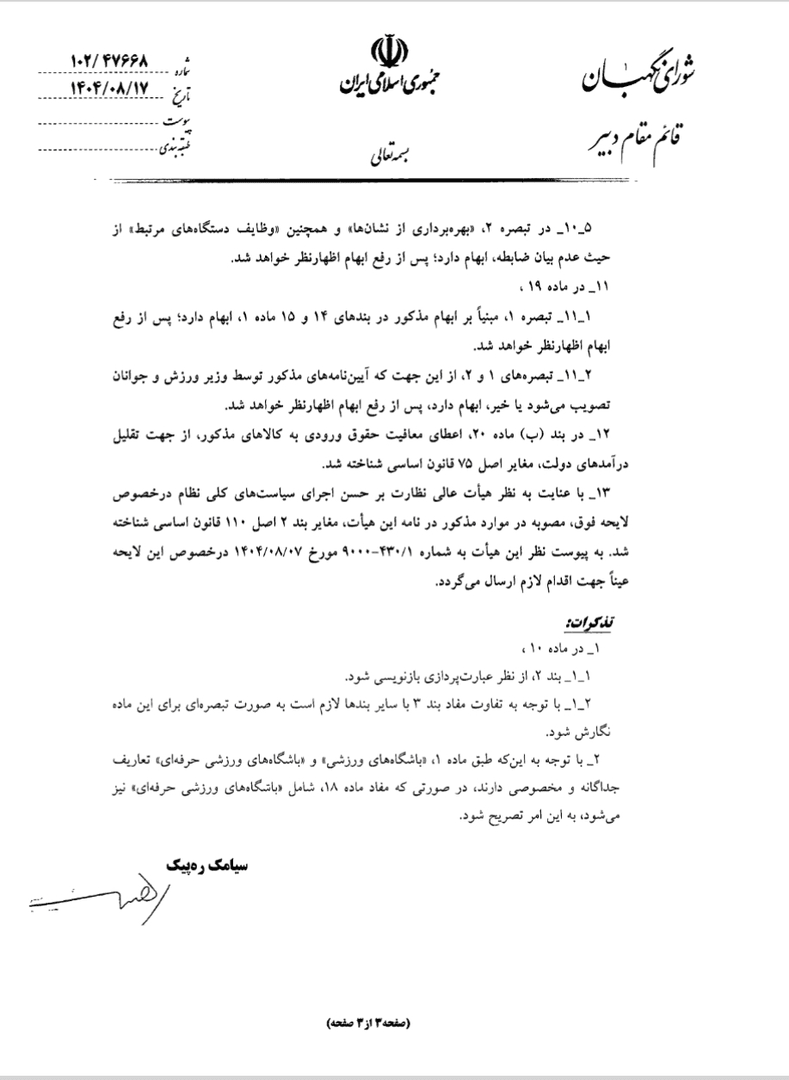 شورای نگهبان
قائم مقام دبیر
جمهوری اسلامی ایران
بسمه تعالی
شماره ۱۰۲/۴۷۶۶۸
تاریخ ۱۴۰۴/۰۸/۱۷
پیوست
طبقه‌بندی
۵_۱۰_ در تبصره ۲، «بهره‌برداری از نشان‌ها» و همچنین «وظایف دستگاه‌های مرتبط» از
حیث عدم بیان ضابطه، ابهام دارد؛ پس از رفع ابهام اظهارنظر خواهد شد.
۱۱_ در ماده ۱۹ ،
۱_۱۱_ تبصره ۱، مبنیاً بر ابهام مذکور در بندهای ۱۴ و ۱۵ ماده ۱، ابهام دارد؛ پس از رفع
ابهام اظهارنظر خواهد شد.
۲_۱۱_ تبصره‌های ۱ و ۲، از این جهت که آیین‌نامه‌های مذکور توسط وزیر ورزش و جوانان
تصویب می‌شود یا خیر، ابهام دارد، پس از رفع ابهام اظهارنظر خواهد شد.
۱۲_ در بند (ب) ماده ۲۰، اعطای معافیت حقوق ورودی به کالاهای مذکور، از جهت تقلیل
درآمدهای دولت، مغایر اصل ۷۵ قانون اساسی شناخته شد.
۱۳_ با عنایت به نظر هیأت عالی نظارت بر حسن اجرای سیاست‌های کلی نظام درخصوص
لایحه فوق، مصوبه در موارد مذکور در نامه این هیأت، مغایر بند ۲ اصل ۱۱۰ قانون اساسی شناخته
شد. به پیوست نظر این هیأت به شماره ۹۰۰۰-۴۳۰/۱ مورخ ۱۴۰۴/۰۸/۰۷ درخصوص این لایحه
عیناً جهت اقدام لازم ارسال می‌گردد.
تذکرات:
۱_ در ماده ۱۰ ،
۱_۱_ بند ۲، از نظر عبارت‌پردازی بازنویسی شود.
۱_۲_ با توجه به تفاوت مفاد بند ۳ با سایر بندها لازم است به صورت تبصره‌ای برای این ماده
نگارش شود.
۲_ با توجه به این‌که طبق ماده ۱، «باشگاه‌های ورزشی» و «باشگاه‌های ورزشی حرفه‌ای» تعاریف
جداگانه و مخصوصی دارند، در صورتی که مفاد ماده ۱۸، شامل «باشگاه‌های ورزشی حرفه‌ای» نیز
می‌شود، به این امر تصریح شود.
سیامک ره‌پیک
(صفحه ۳ از ۳ صفحه)